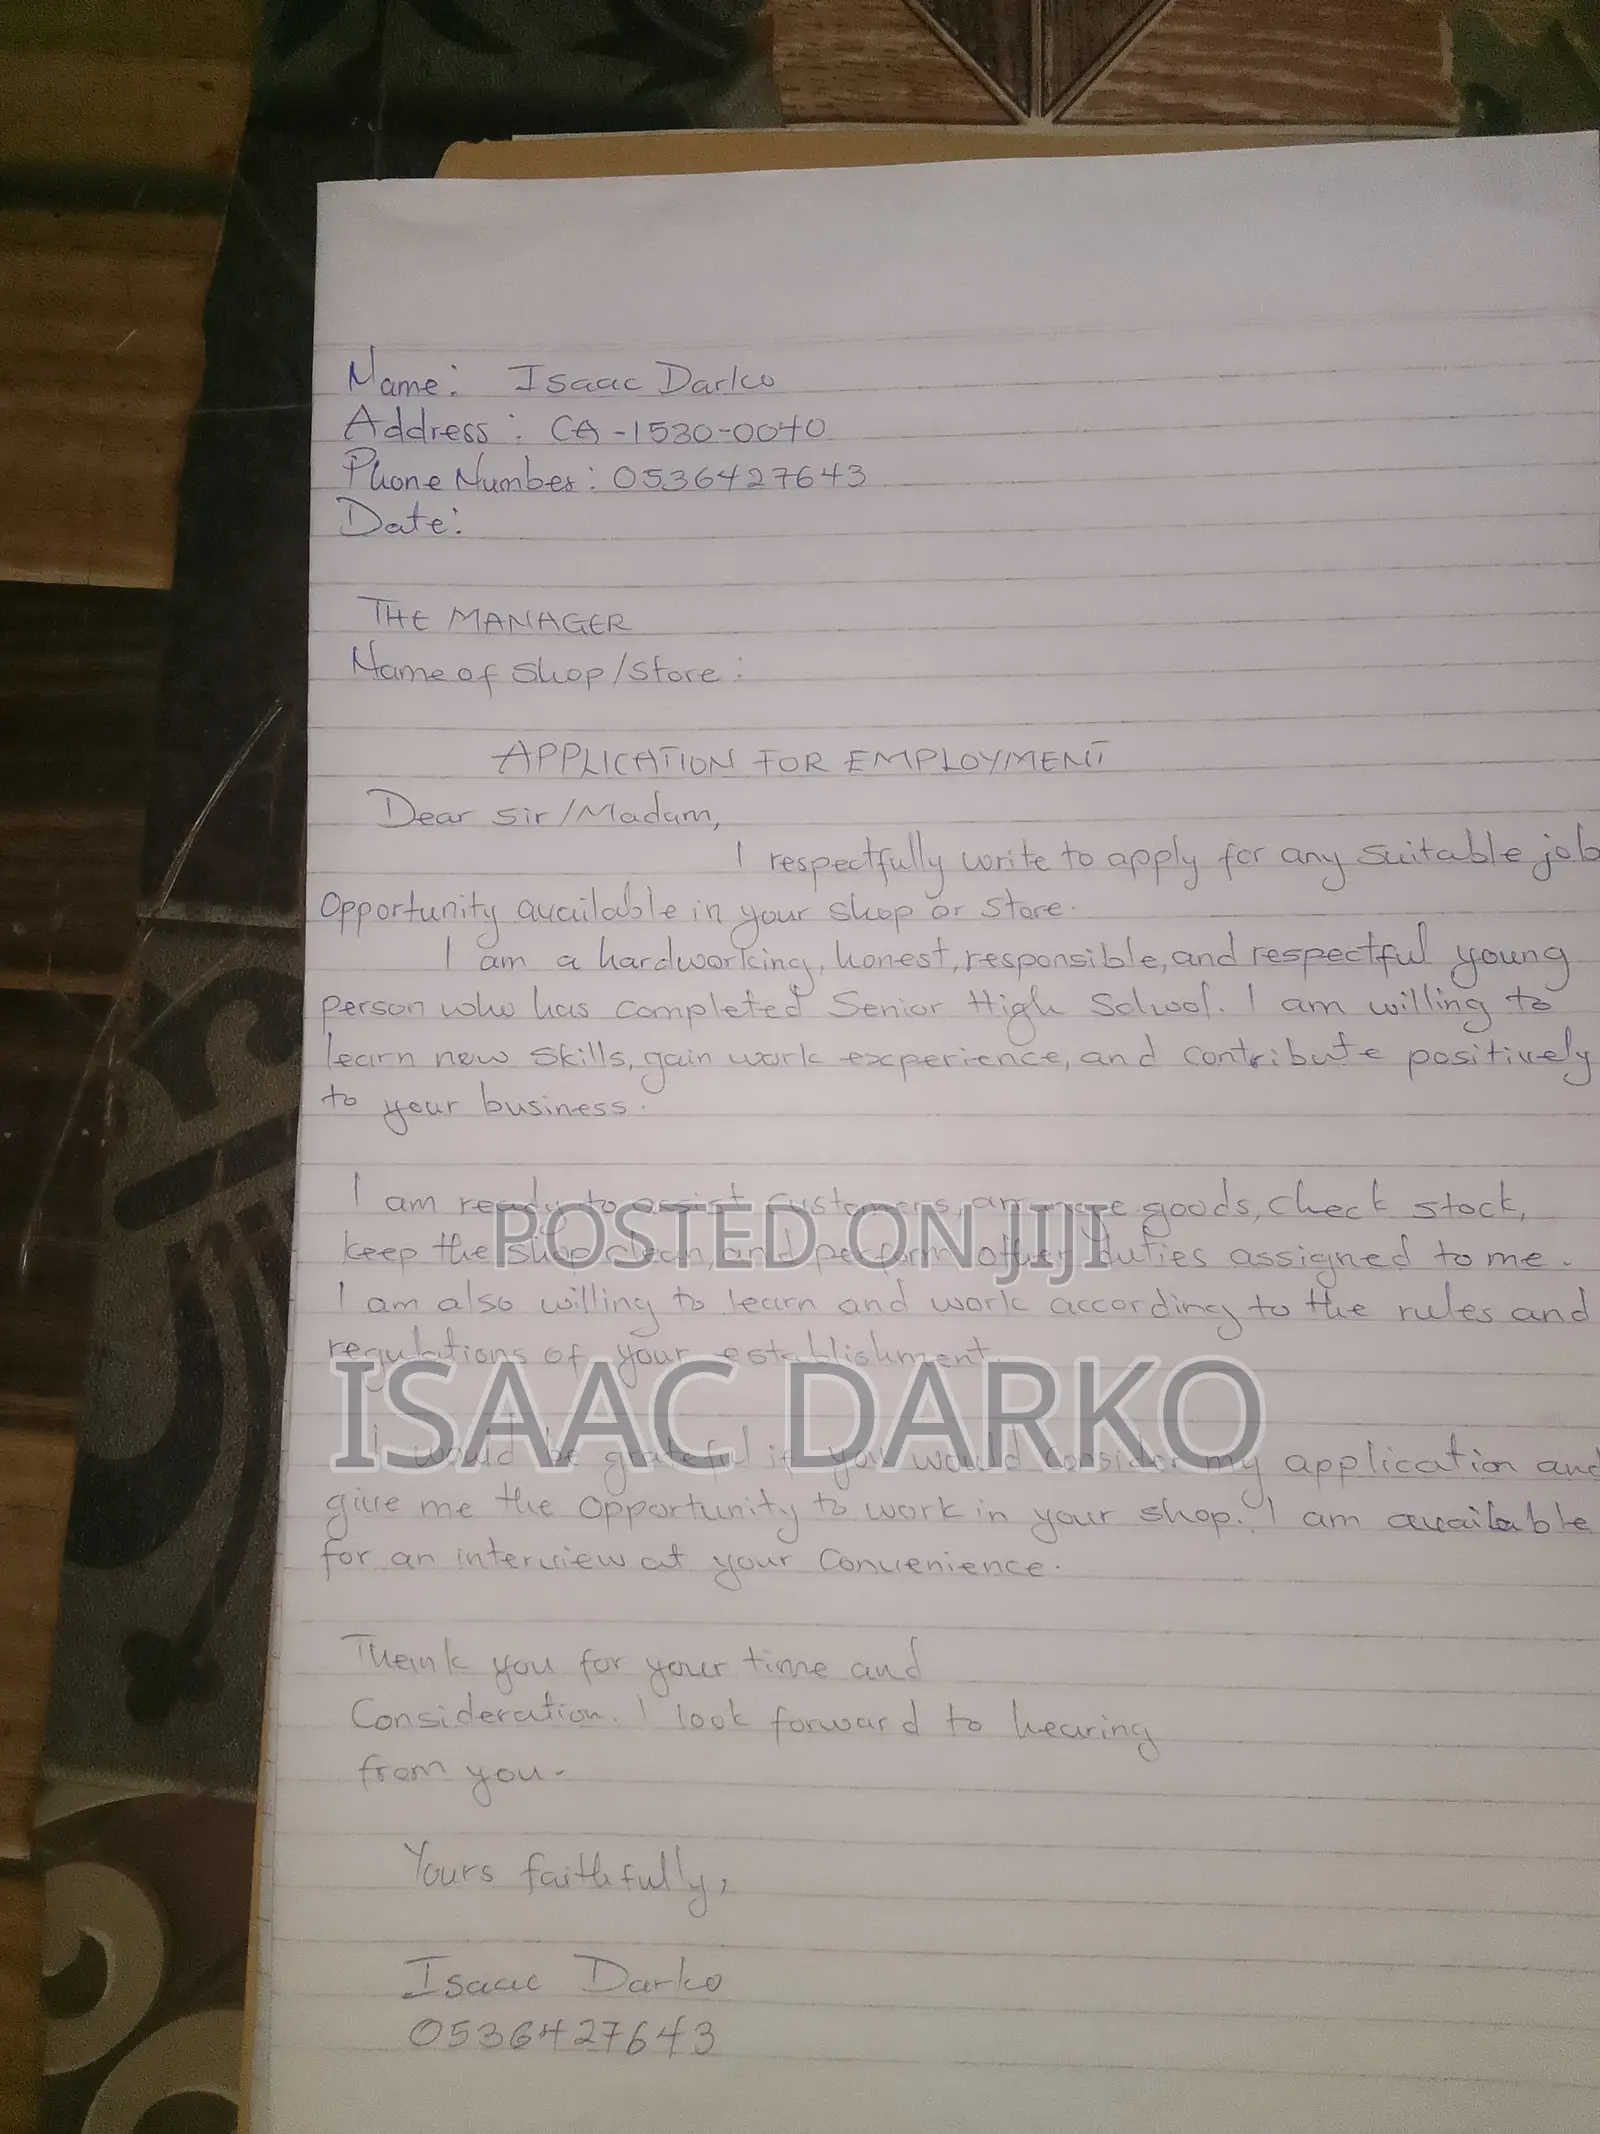 Name: Isaac Darko
Address: CA-1530-0040
Phone Number: 0536427643
Date:
THE MANAGER
Name of Shop/Store:
APPLICATION FOR EMPLOYMENT
Dear Sir/Madam,
I respectfully write to apply for any suitable job
Opportunity available in your shop or store.
I am a hardworking, honest, responsible, and respectful young
person who has completed Senior High School. I am willing to
learn new skills, gain work experience, and contribute positively
to your business.
I am ready to assist customers, arrange goods, check stock,
keep the shop clean, and perform other duties assigned to me.
POSTED ON JIJI
I am also willing to learn and work according to the rules and
regulations of your establishment.
ISAAC DARKO
I would be grateful if you would consider my application and
give me the opportunity to work in your shop. I am available
for an interview at your convenience.
Thank you for your time and
Consideration. I look forward to hearing
from you.
Yours faithfully,
Isaac Darko
0536427643